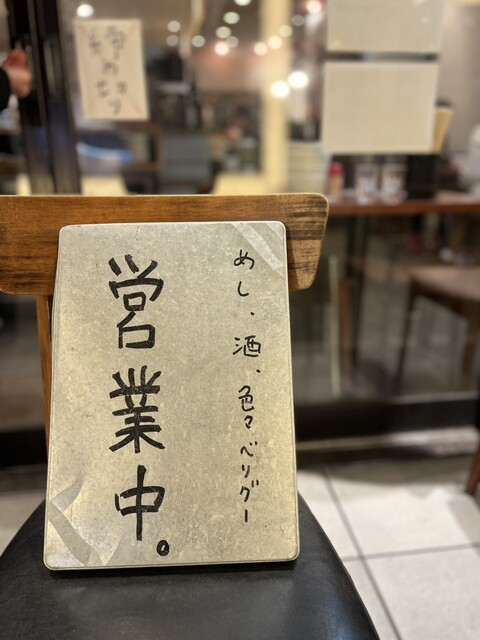 めし、酒、色々ベリグー
営業中。